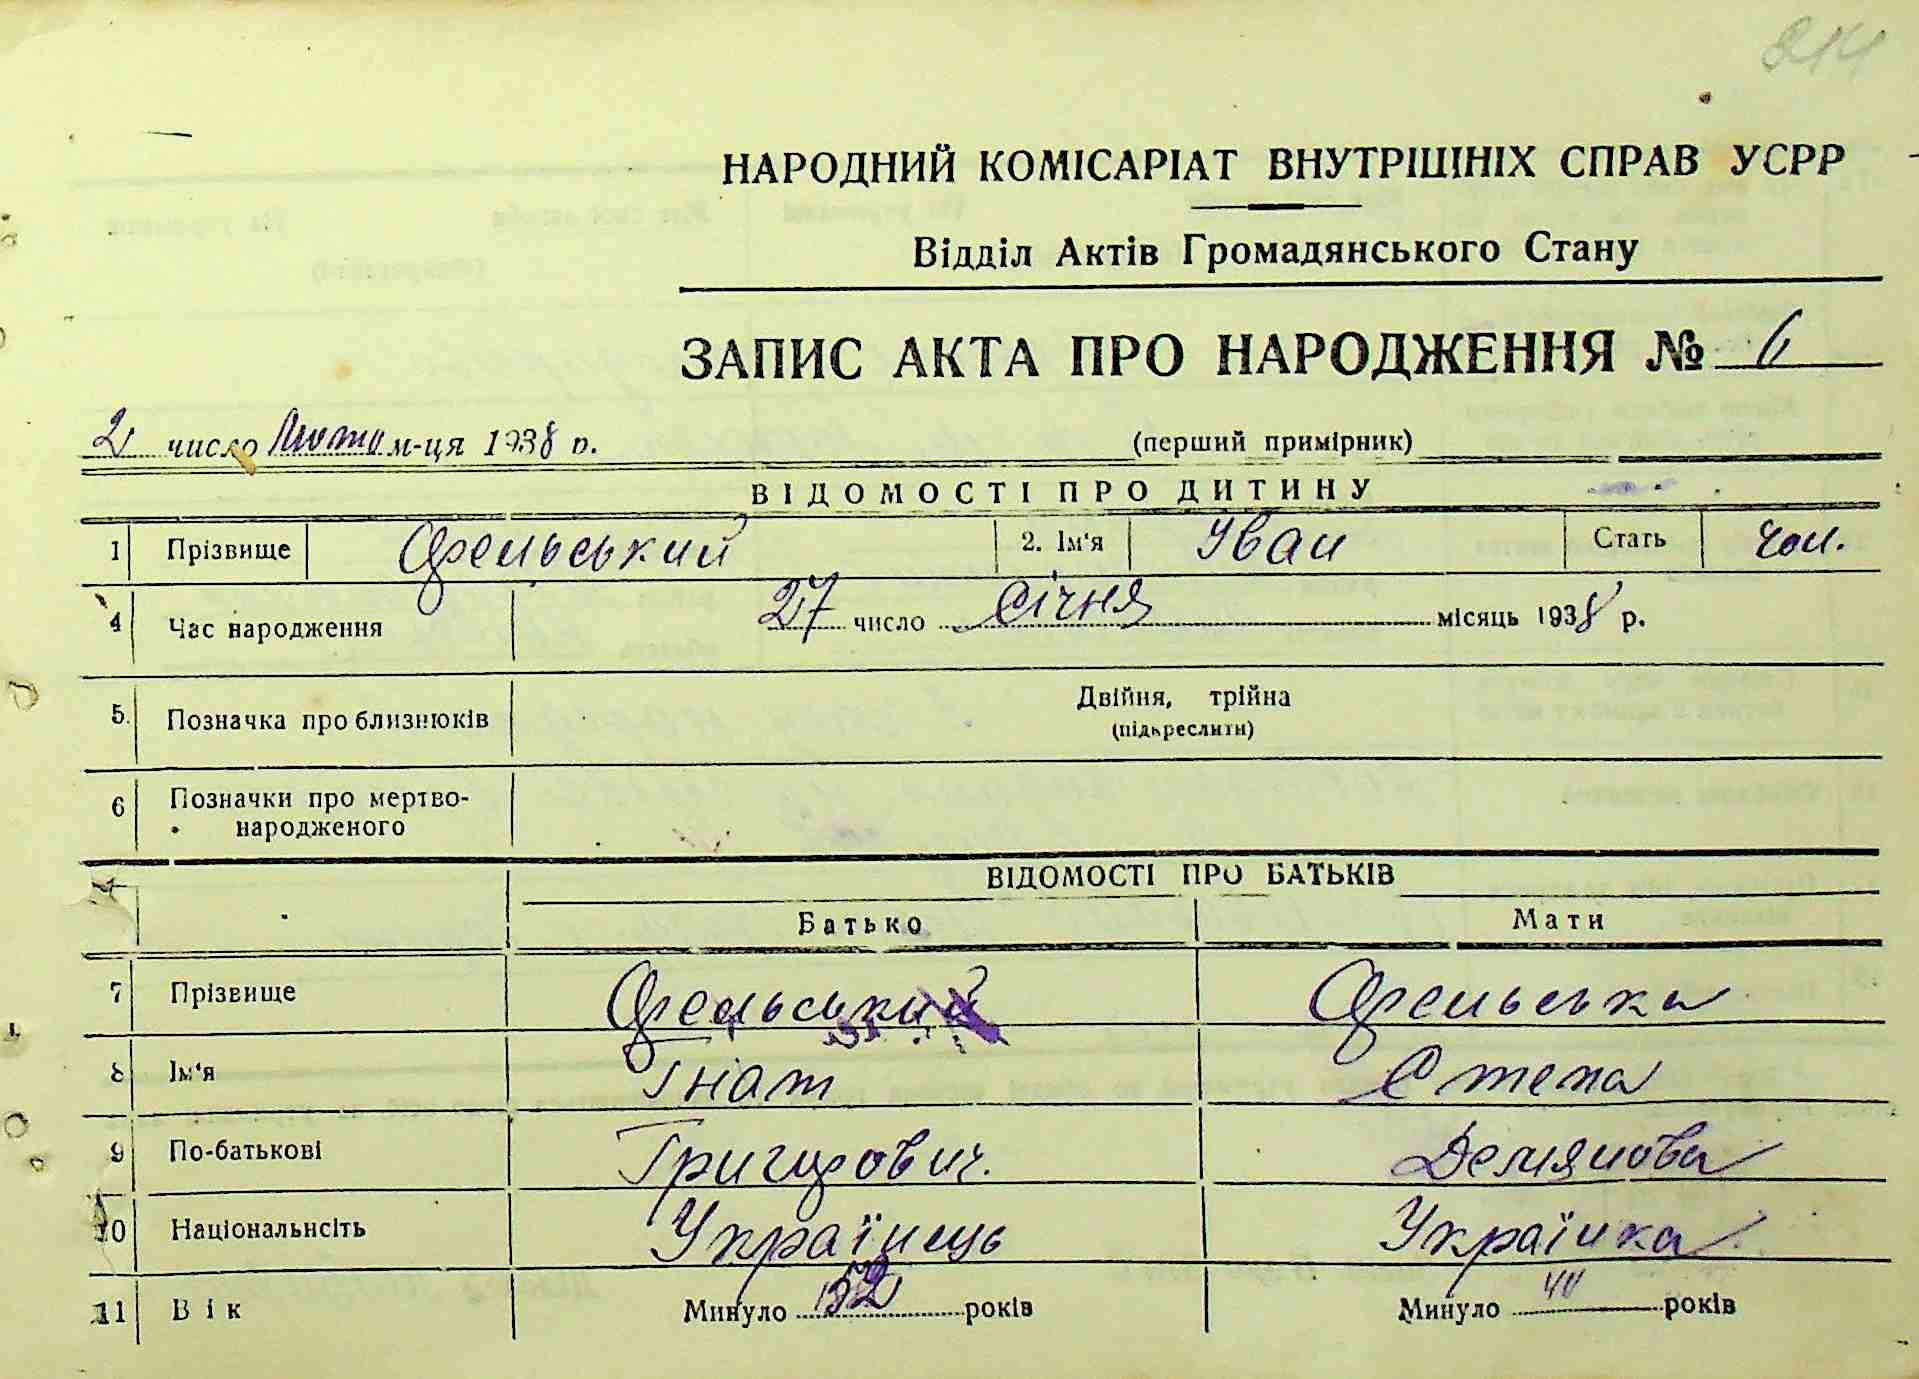 214
НАРОДНИЙ КОМІСАРІАТ ВНУТРІШНІХ СПРАВ УСРР
Відділ Актів Громадянського Стану
ЗАПИС АКТА ПРО НАРОДЖЕННЯ № 6
2 число Лютого м-ця 1938 р. (перший примірник)
ВІДОМОСТІ ПРО ДИТИНУ
1 Прізвище Орельський 2. Ім'я Іван Стать чол.
4 Час народження 27 число Січня місяць 1938 р.
5. Позначка про близнюків Двійня, трійна
(підкреслити)
6 Позначки про мертво-
народженого
ВІДОМОСТІ ПРО БАТЬКІВ
Батько Мати
7 Прізвище Орельський Орельська
8 Ім'я Гнат Степа
9 По-батькові Григорович. Демянова
10 Національнсіть Українець Українка
11 Вік Минуло 52 років Минуло 40 років